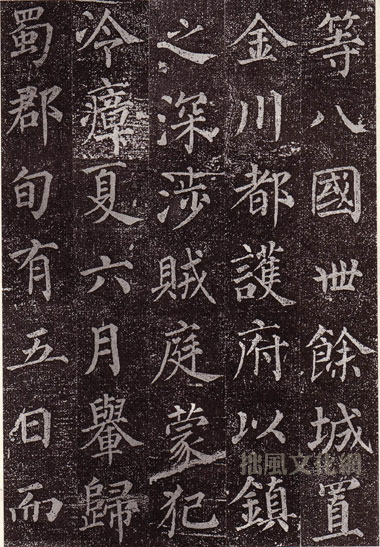 等八國丗餘城置
金川都護府以鎮
之深涉賊庭蒙犯
冷瘴夏六月轝歸
蜀郡旬有五日而
拙風文化網